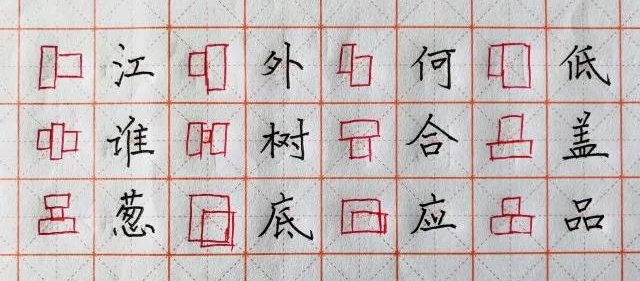 江 外 何 低
谁 树 合 盖
葱 底 应 品